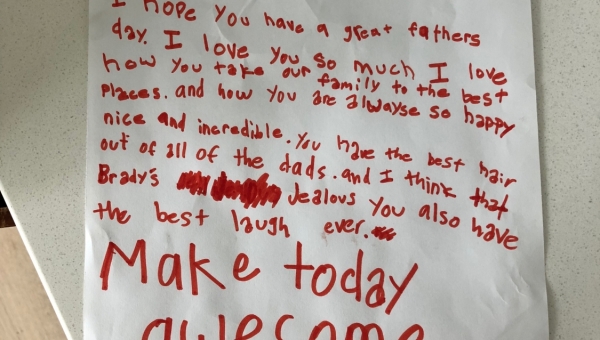 I hope you have a great fathers
day. I love you so much I love
how you take our family to the best
Places. and how you are alwayse so happy
nice and incredible. You have the best hair
out of all of the dads. and I think that
Brady's Jealous You also have
the best laugh ever.
Make today
awesome